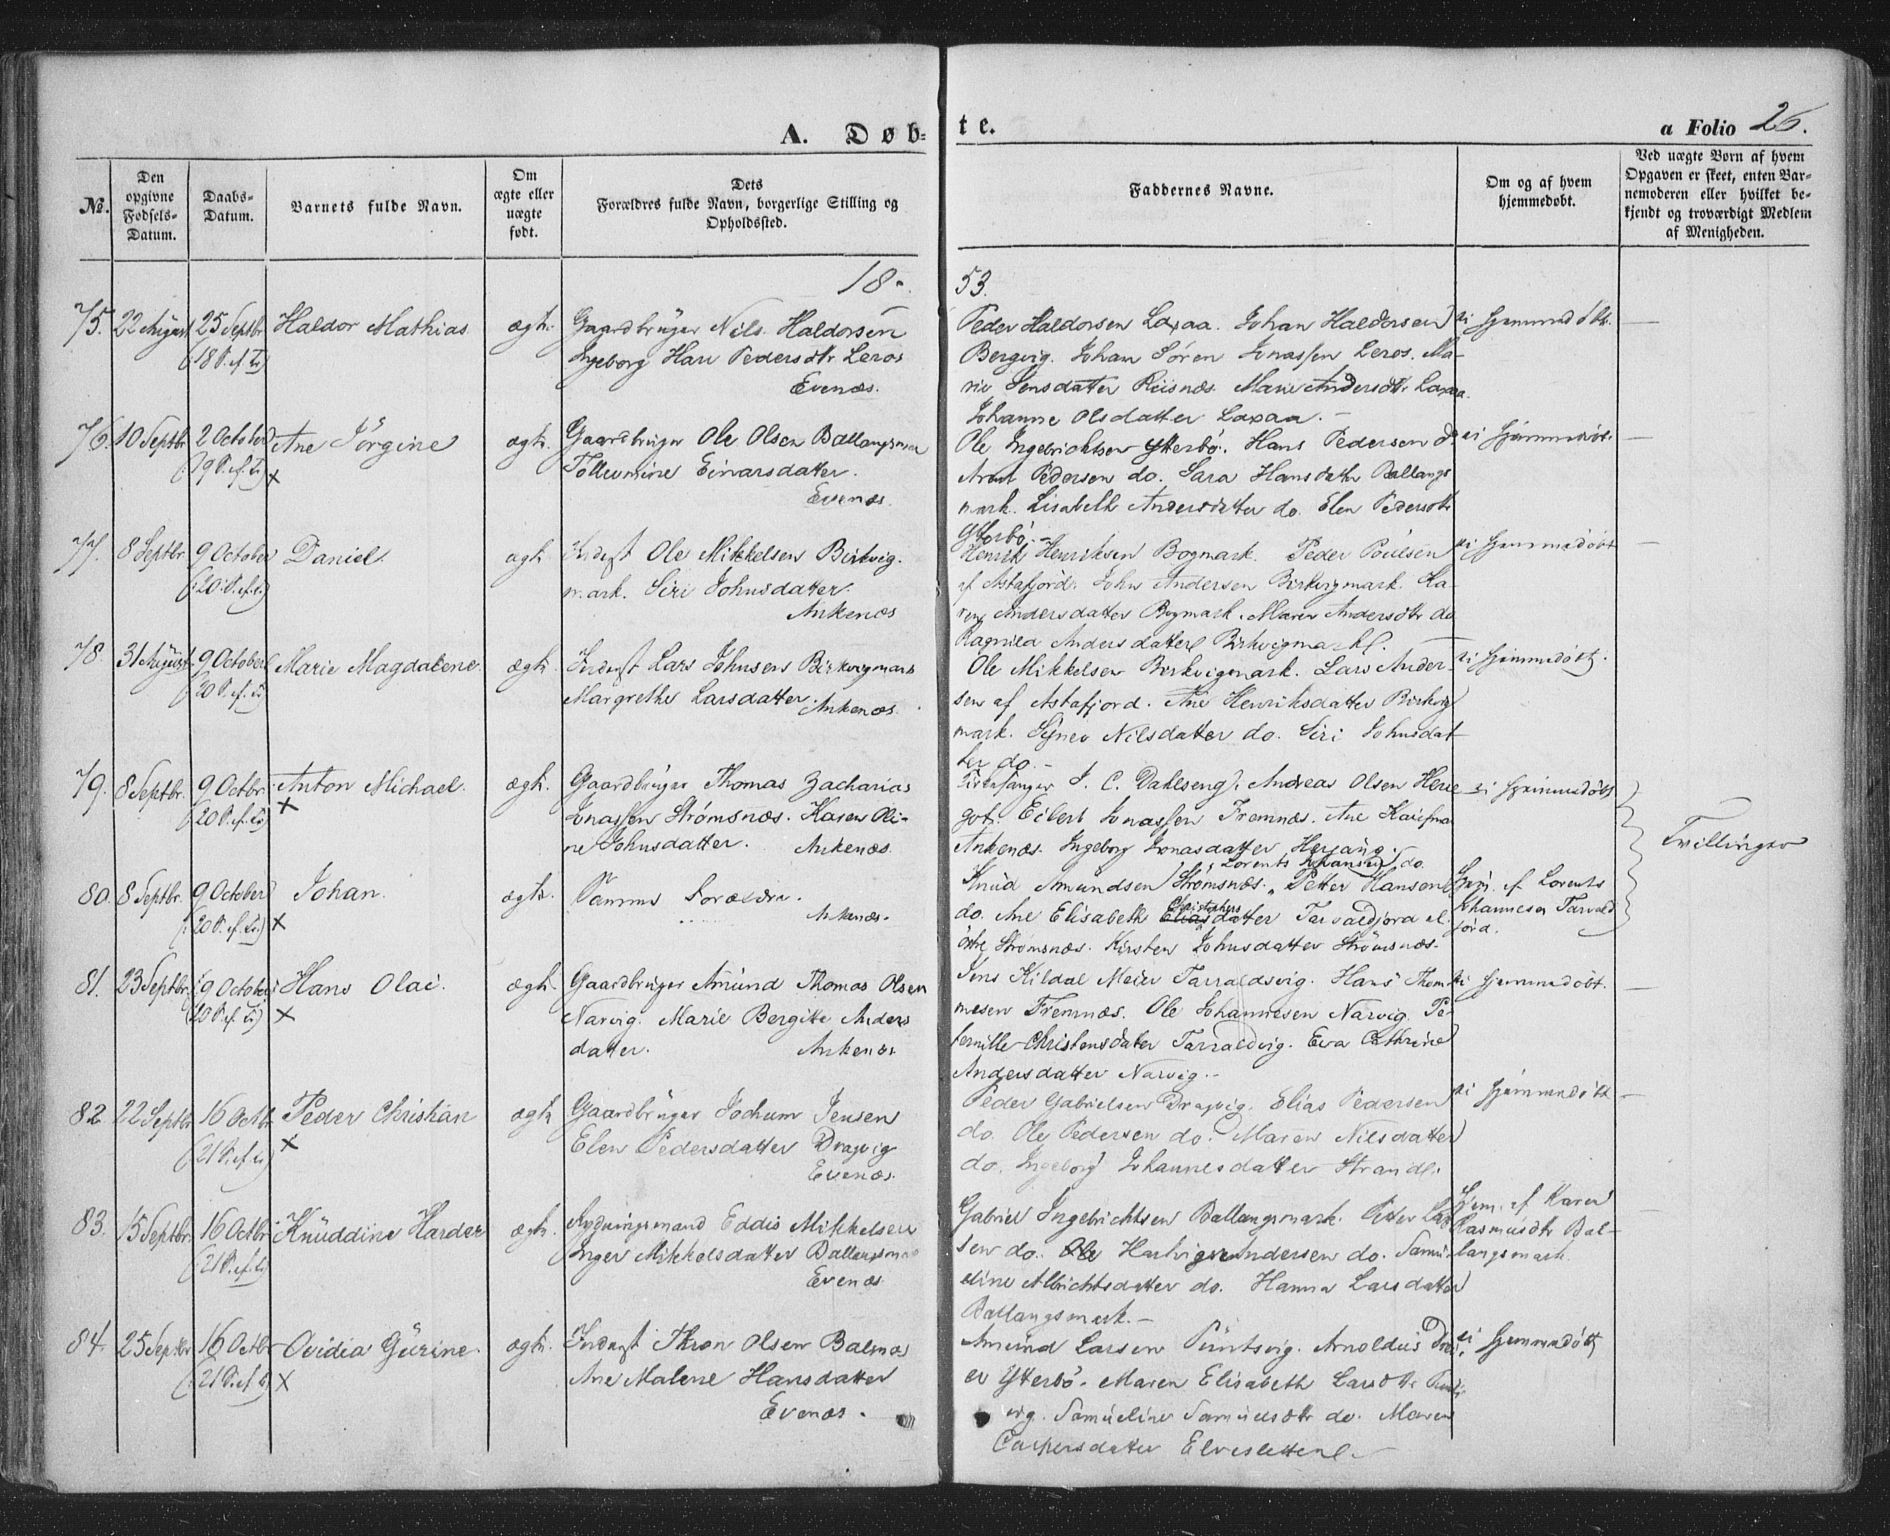 A. Døb=
te.
a Folio 26.
№.
Den opgivne Fødsels-Datum.
Daabs-Datum.
Barnets fulde Navn.
Om ægte eller uægte født.
Dets Forældres fulde Navn, borgerlige Stilling og Opholdssted.
Faddernes Navne.
Om og af hvem hjemmedøbt.
Ved uægte Børn af hvem Opgaven er skeet, enten Barnemoderen eller hvilket bekjendt og troværdigt Medlem af Menigheden.
18
53.
75. 22 August 25 Septbr (18 S. ef. Tr.) Haldor Mathias ægte.
Gaardbruger Nils Haldorsen
Ingeborg Hans Pedersdtr Leros
Evenæs.
Peder Haldorsen Laxaa. Johan Haldorsen
Bergvig. Johan Sören Jonassen Leros. Ma-
rie Jensdatter Reisnæs. Marie Andersdtr Laxaa
Johanne Olsdatter Laxaa.
ei Hjemmedøbt.
76. 10 Septbr 2 October (19 S. ef. Tr.) x Ane Jörgine ægte.
Gaardbruger Ole Olsen Ballangsmark
Einarsdatter.
Evenæs.
Ole Ingebrichtsen Ytterbö. Hans Pedersen do
Arnt Pedersen do. Sara Hansdatter Ballangs
mark. Lisabeth Andersdatter do. Elen Pedersdtr
Ytterbö.
ei Hjemmedøbt.
77. 8 Septbr. 9 October (20 S. ef. Tr.) Daniel. ægte.
Inderst Ole Mikkelsen Birkvig-
mark. Siri Johnsdatter.
Ankenæs
Henrik Henriksen Bogmark. Peder Poulsen
af Astafjord. John Andersen Birkvigmark. Ka-
ren Andersdatter Bogmark. Maren Andersdtr do
Ragnild Andersdatter Birkvigmark.
ei Hjemmedøbt
78. 31 August 9 October (20 S. ef. Tr.) Marie Magdalene. ægte.
Inderst Lars Johnsen Birkvigmark
Margrethe Larsdatter.
Ankenæs.
Ole Mikkelsen Birkvigmark. Lars Ander-
sen af Astafjord. Ane Henriksdatter Birkvig
mark. Nilsdatter do. Siri Johnsdat-
ter do.
ei Hjemmedøbt.
79. 8 Septbr. 9 Octbr. (20 S. ef. Tr.) x Anton Michael. ægte.
Gaardbruger Thomas Zacharias
Jonassen Strømsnæs. Karen Oli-
ne Johnsdatter.
Ankenæs.
Kirkesanger J. C. Dahlseng. Andreas Olsen Herje-
got. Eilert Jonassen Fremnæs. Ane
Ankenæs. Ingeborg Jonasdatter Herjang.
ei Hjemmedøbt
Tvillinger
80. 8 Septbr. 9 October (20 S. ef. Tr.) x Johan. ægte.
Samme Forældre.
Ankenæs.
Lorents Johansen do.
Knud Amundsen Strømsnæs. Petter Hansen
do. Ane Elisabeth Elias Christophers datter
Strømsnæs. Kirsten Johnsdatter Strömsnæs.
Hjem. af Lorents
Johannesen Tarvald
fjord.
81. 23 Septbr. 9 October (20 S. ef. Tr.) x Hans Olai. ægte.
Gaardbruger Amund Thomas Olsen
Narvig. Marie Bergitte Anders
datter.
Ankenæs
Jens Kildal Meier Tarraldsvig. Hans Thom-
mesen Fremnæs. Ole Johannesen Narvig. Pe-
ternille Christensdatter Tarraldvig. Eva Cathrine
Andersdatter Narvig.
ei Hjemmedøbt.
82 22 Septbr 16 Octbr (21 S. ef. Tr.) x Peder Christian ægte
Gaardbruger Jochum Jensen
Elen Pedersdatter Dragvig
Evenæs.
Peder Gabrielsen Dragvig. Elias Pedersen
do. Ole Pedersen do. Maren Nilsdatter
do. Ingeborg Johannesdatter Strand.
ei Hjemmedøbt
83. 15 Septbr. 16 Octbr (21 S. ef. Tr.) Knuddine Harder ægte.
Rydningsmand Eddis Mikkelsen
Inger Mikkelsdatter Ballangsmark
Evenæs
Gabriel Ingebrichtsen Ballangsmark. Petter Lar
sen do. Ole Hartvig Andersen do. Samu-
eline Albrichtsdatter do. Hanna Larsdatter
Ballangsmark.
Hjem. af Karen
Rasmusdtr Bal-
langsmark
84. 25 Septbr 16 Octbr (21 S. ef. Tr.) x Ovidia Gurine. ægte.
Inderst Thron Olsen Balnes
Ane Malene Hansdatter
Evenæs.
Amund Larsen Puntsvig. Arnoldus
Ytterbö. Maren Elisabeth Larsdtr Punts
vig. Samueline Samuelsdtr do. Maren
Caspersdatter Elvesletten
ei Hjemmedøbt